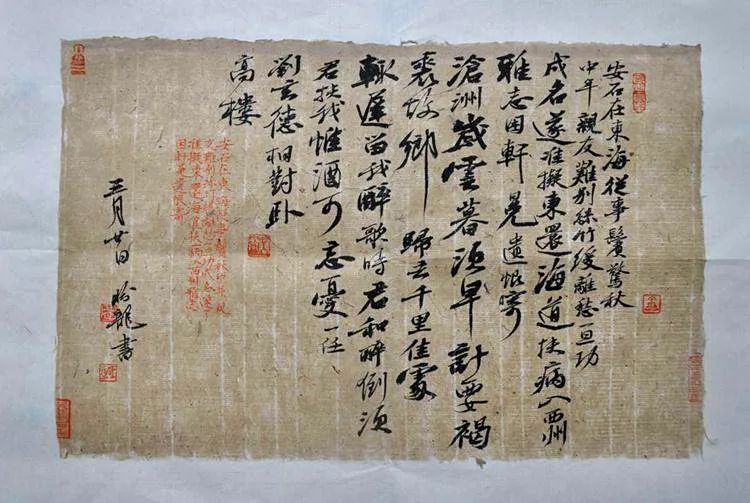 安石在東海從事鬢驚秋
中年親友難別絲竹緩離愁一旦功
成名遂准擬東還海道扶病入西州
雅志困軒冕遺恨寄
滄洲歲雲暮須早計要褐
裘故鄉歸去千里佳處
輒遲留我醉歌時君和醉倒須
君扶我惟酒可忘憂一任
劉玄德相對臥
高樓
安石在東海從事鬢驚秋中年親
五月廿日 龍書